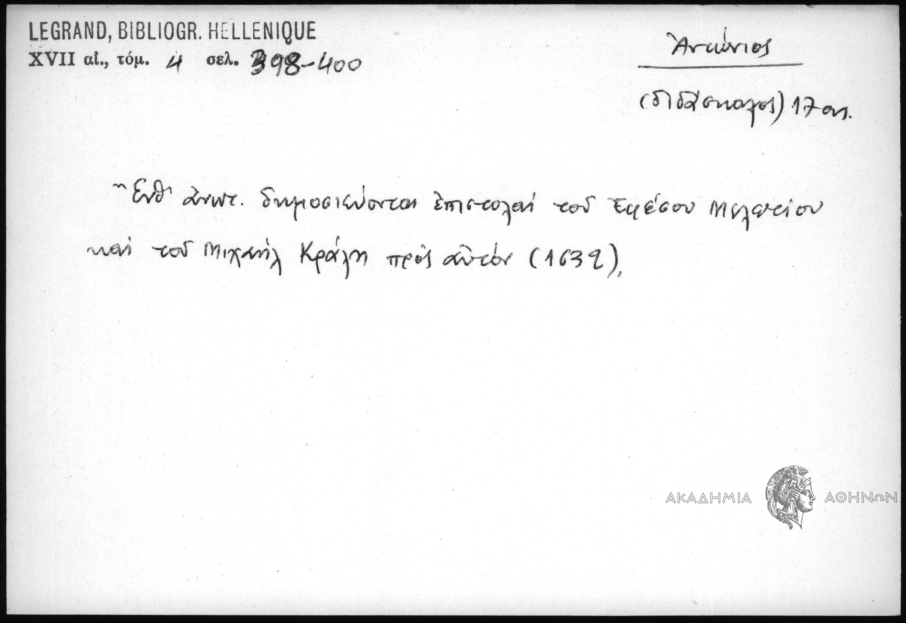 LEGRAND, BIBLIOGR. HELLENIQUE
XVII αἰ., τόμ. 4 σελ. 398-400
Ἀντώνιος
(διδάσκαλος) 17 αι.
Ἔνθ' ἀνωτ. δημοσιεύονται ἐπιστολαὶ τοῦ Ἐφέσου Μελετίου
καὶ τοῦ Μιχαὴλ Κράλη πρὸς αὐτόν (1632).
ΑΚΑΔΗΜΙΑ ΑΘΗΝΩΝ